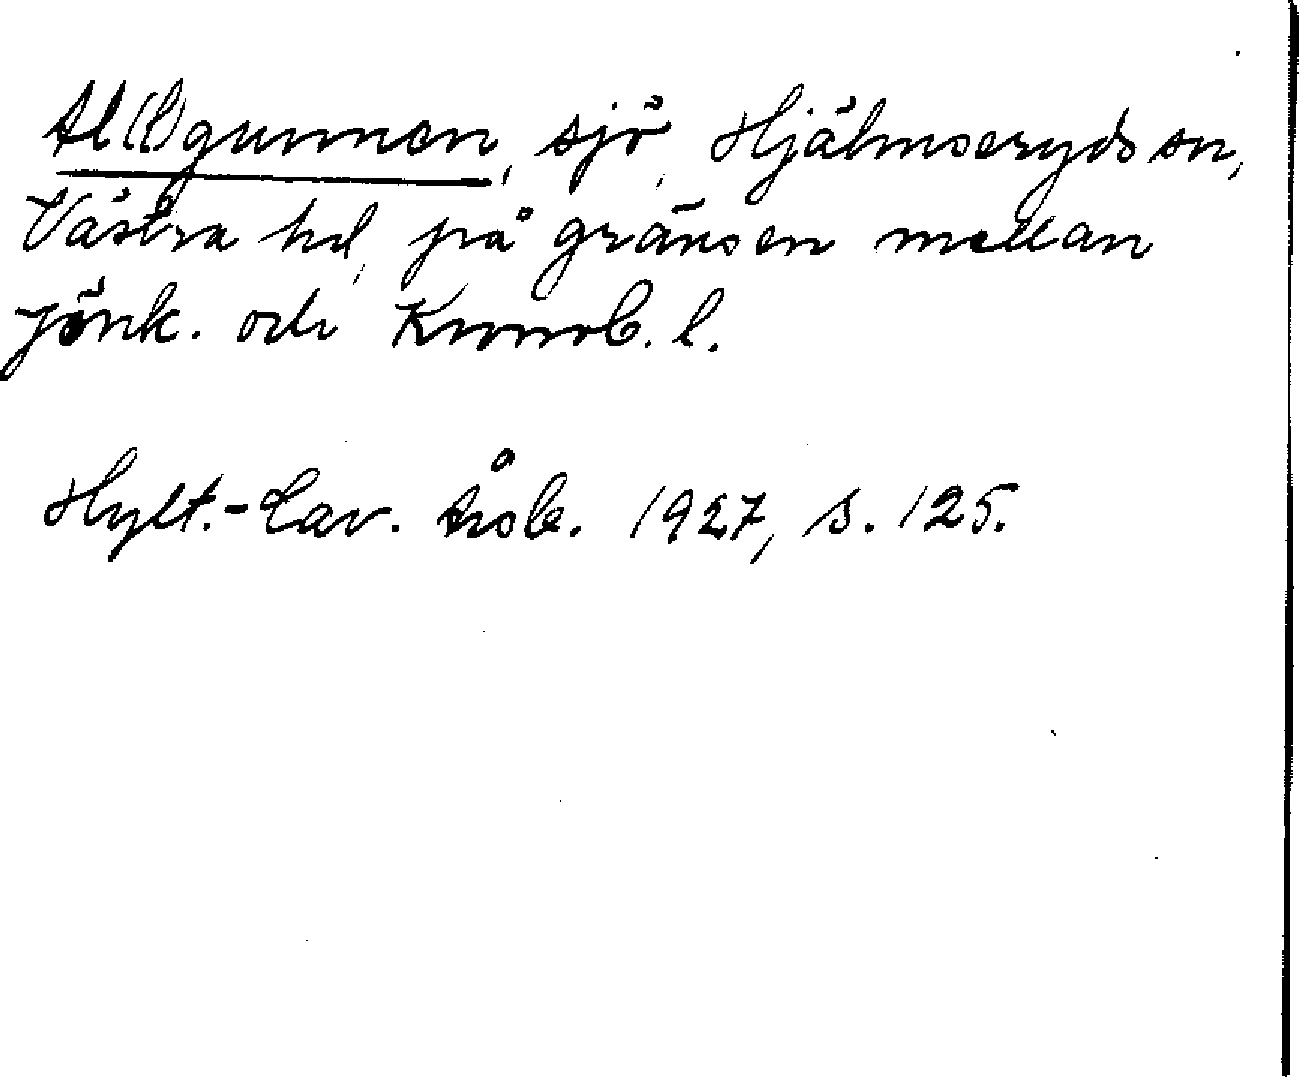 Al(l)gunnen, sjö, Hjälmseryds sn,
Västra hd, på gränsen mellan
Jönk. och Kronob. l.
Hylt.-Cav. Årsb. 1927, s. 125.